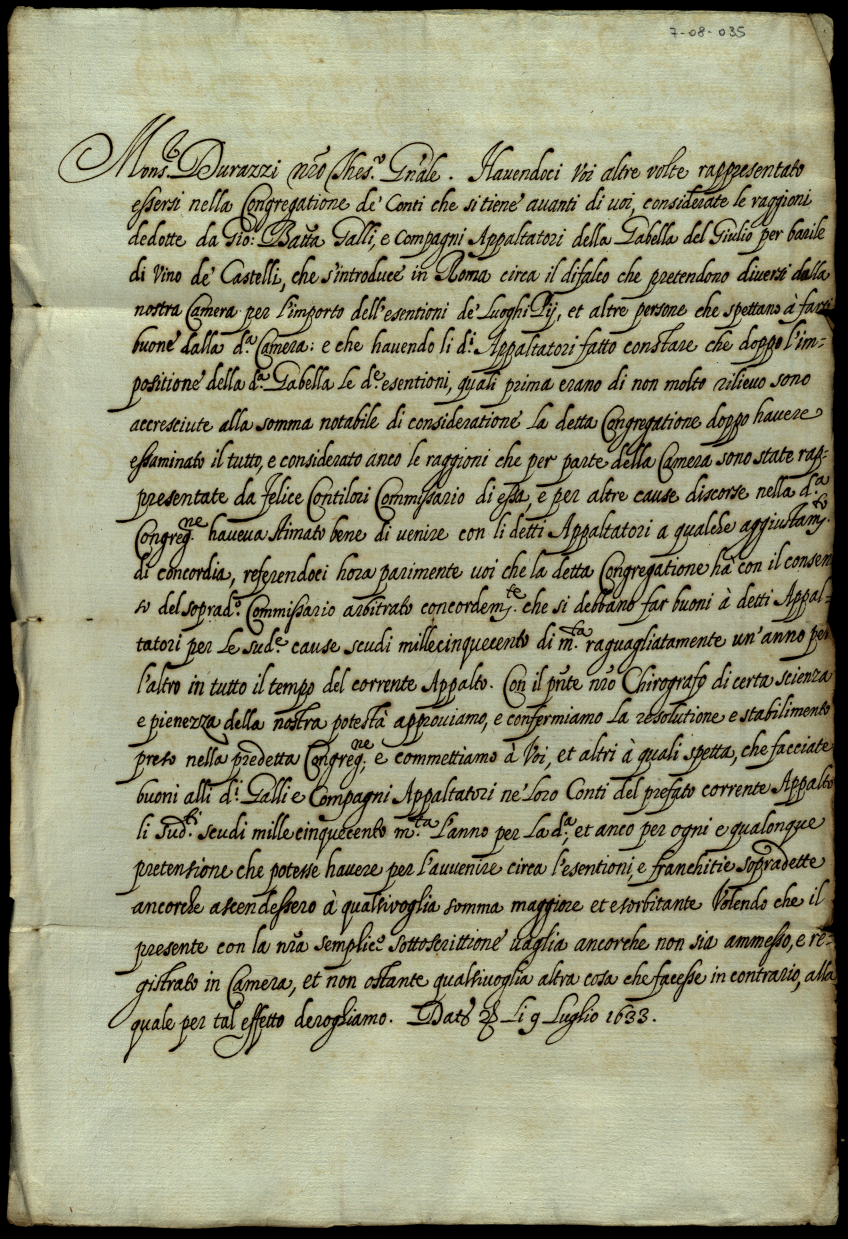 7-08-035
Mons.r Durazzi nr̃o Thes.ro Gñale. Havendoci Voi altre volte rappresentato
essersi nella Congregatione de' Conti che si tiene avanti di voi, considerate le raggioni
dedotte da Gio: Batta Galli, e Compagni Appaltatori della Gabella del Giulio per barile
di Vino de' Castelli, che s'introduce in Roma circa il difalco che pretendono diversi dalla
nostra Camera per l'importo dell'esentioni de' Luoghi Pij, et altre persone che spettano à farsi
buone dalla d.a Camera: e che havendo li d.i Appaltatori fatto constare che doppo l'im=
positione della d.a Gabella le d.e esentioni, quali prima erano di non molto rilievo sono
accresciute alla somma notabile di consideratione la detta Congregatione doppo havere
essaminato il tutto, e considerato anco le raggioni che per parte della Camera sono state rap=
presentate da Felice Contilori Commissario di essa, e per altre cause discorse nella d.a
Congreg.ne haveva stimato bene di venire con li detti Appaltatori a qualche aggiustam.to
di concordia, referendoci hora parimente voi che la detta Congregatione hà con il consen
to del soprad.o Commissario arbitrato concordem.te che si debbano far buoni à detti Appal=
tatori per le sud.e cause scudi millecinquecento di m.ta raguagliatamente un'anno per
l'altro in tutto il tempo del corrente Appalto. Con il pr̃nte nr̃o Chirografo di certa scienza
e pienezza della nostra potestà approviamo, e confermiamo la resolutione e stabilimento
preso nella predetta Congreg.ne, e commettiamo à Voi, et altri à quali spetta, che facciate
buoni alli d.i Galli e Compagni Appaltatori ne' loro Conti del prefato corrente Appalto
li sud.ti scudi mille cinquecento m.ta l'anno per la d.a, et anco per ogni e qualonque
pretensione che potesse havere per l'avvenire circa l'esentioni, e franchitie sopradette
ancorche ascendessero à qualsivoglia somma maggiore et esorbitante Volendo che il
presente con la nr̃a semplice sottoscrittione vaglia ancorche non sia ammesso, e re=
gistrato in Camera, et non ostante qualsivoglia altra cosa che facesse in contrario, alla
quale per tal effetto deroghiamo. Dat li 9 Luglio 1633.